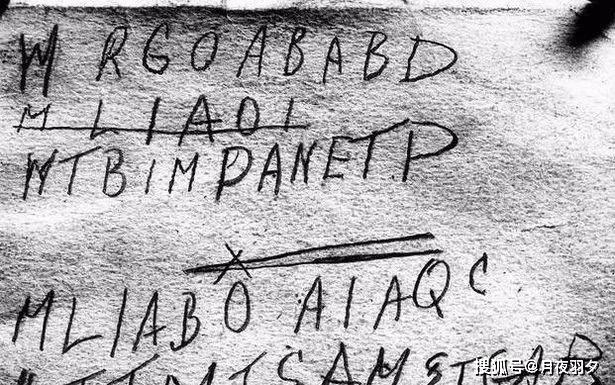 W RGOABABD
MLIAOI
WTBIMPANETP
X
MLIABO AIAQC
搜狐号@月夜羽夕